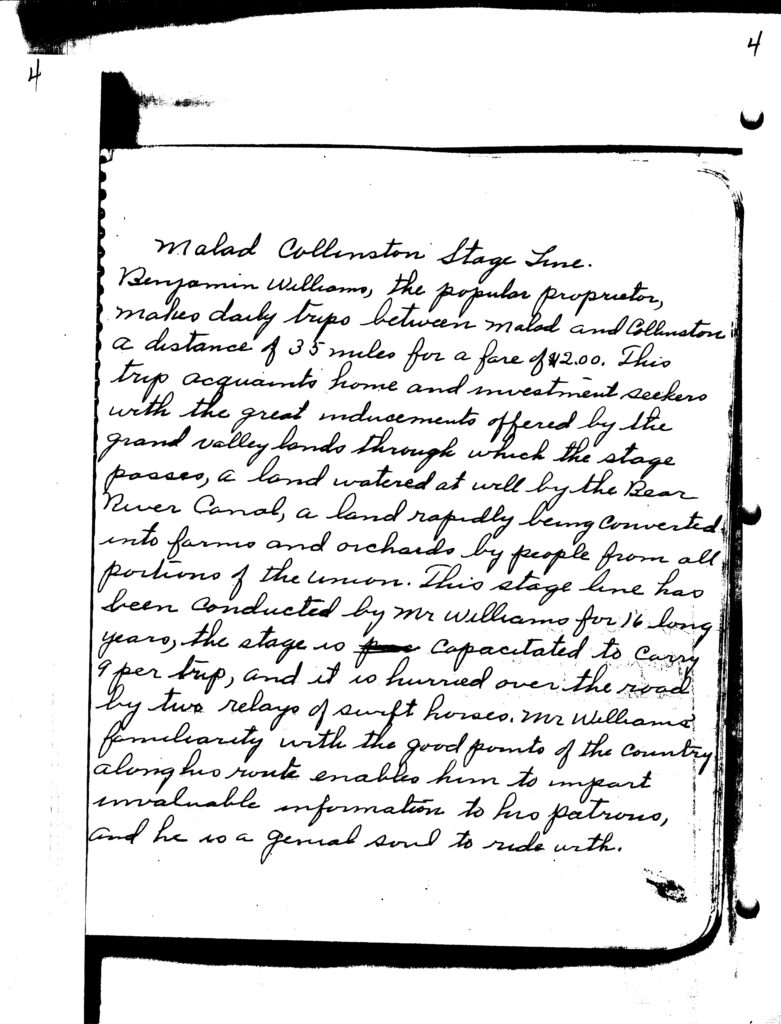 4
4
Malad Collinston Stage Line.
Benjamin Williams, the popular proprietor,
makes daily trips between Malad and Collinston
a distance of 35 miles for a fare of $2.00. This
trip acquaints home and investment seekers
with the great inducements offered by the
grand valley lands through which the stage
passes, a land watered at will by the Bear
River Canal, a land rapidly being converted
into farms and orchards by people from all
portions of the union. This stage line has
been conducted by Mr Williams for 16 long
years, the stage is capacitated to carry
9 per trip, and it is hurried over the road
by two relays of swift horses. Mr Williams
familiarity with the good points of the country
along his route enables him to impart
invaluable information to his patrons,
and he is a genial soul to ride with.